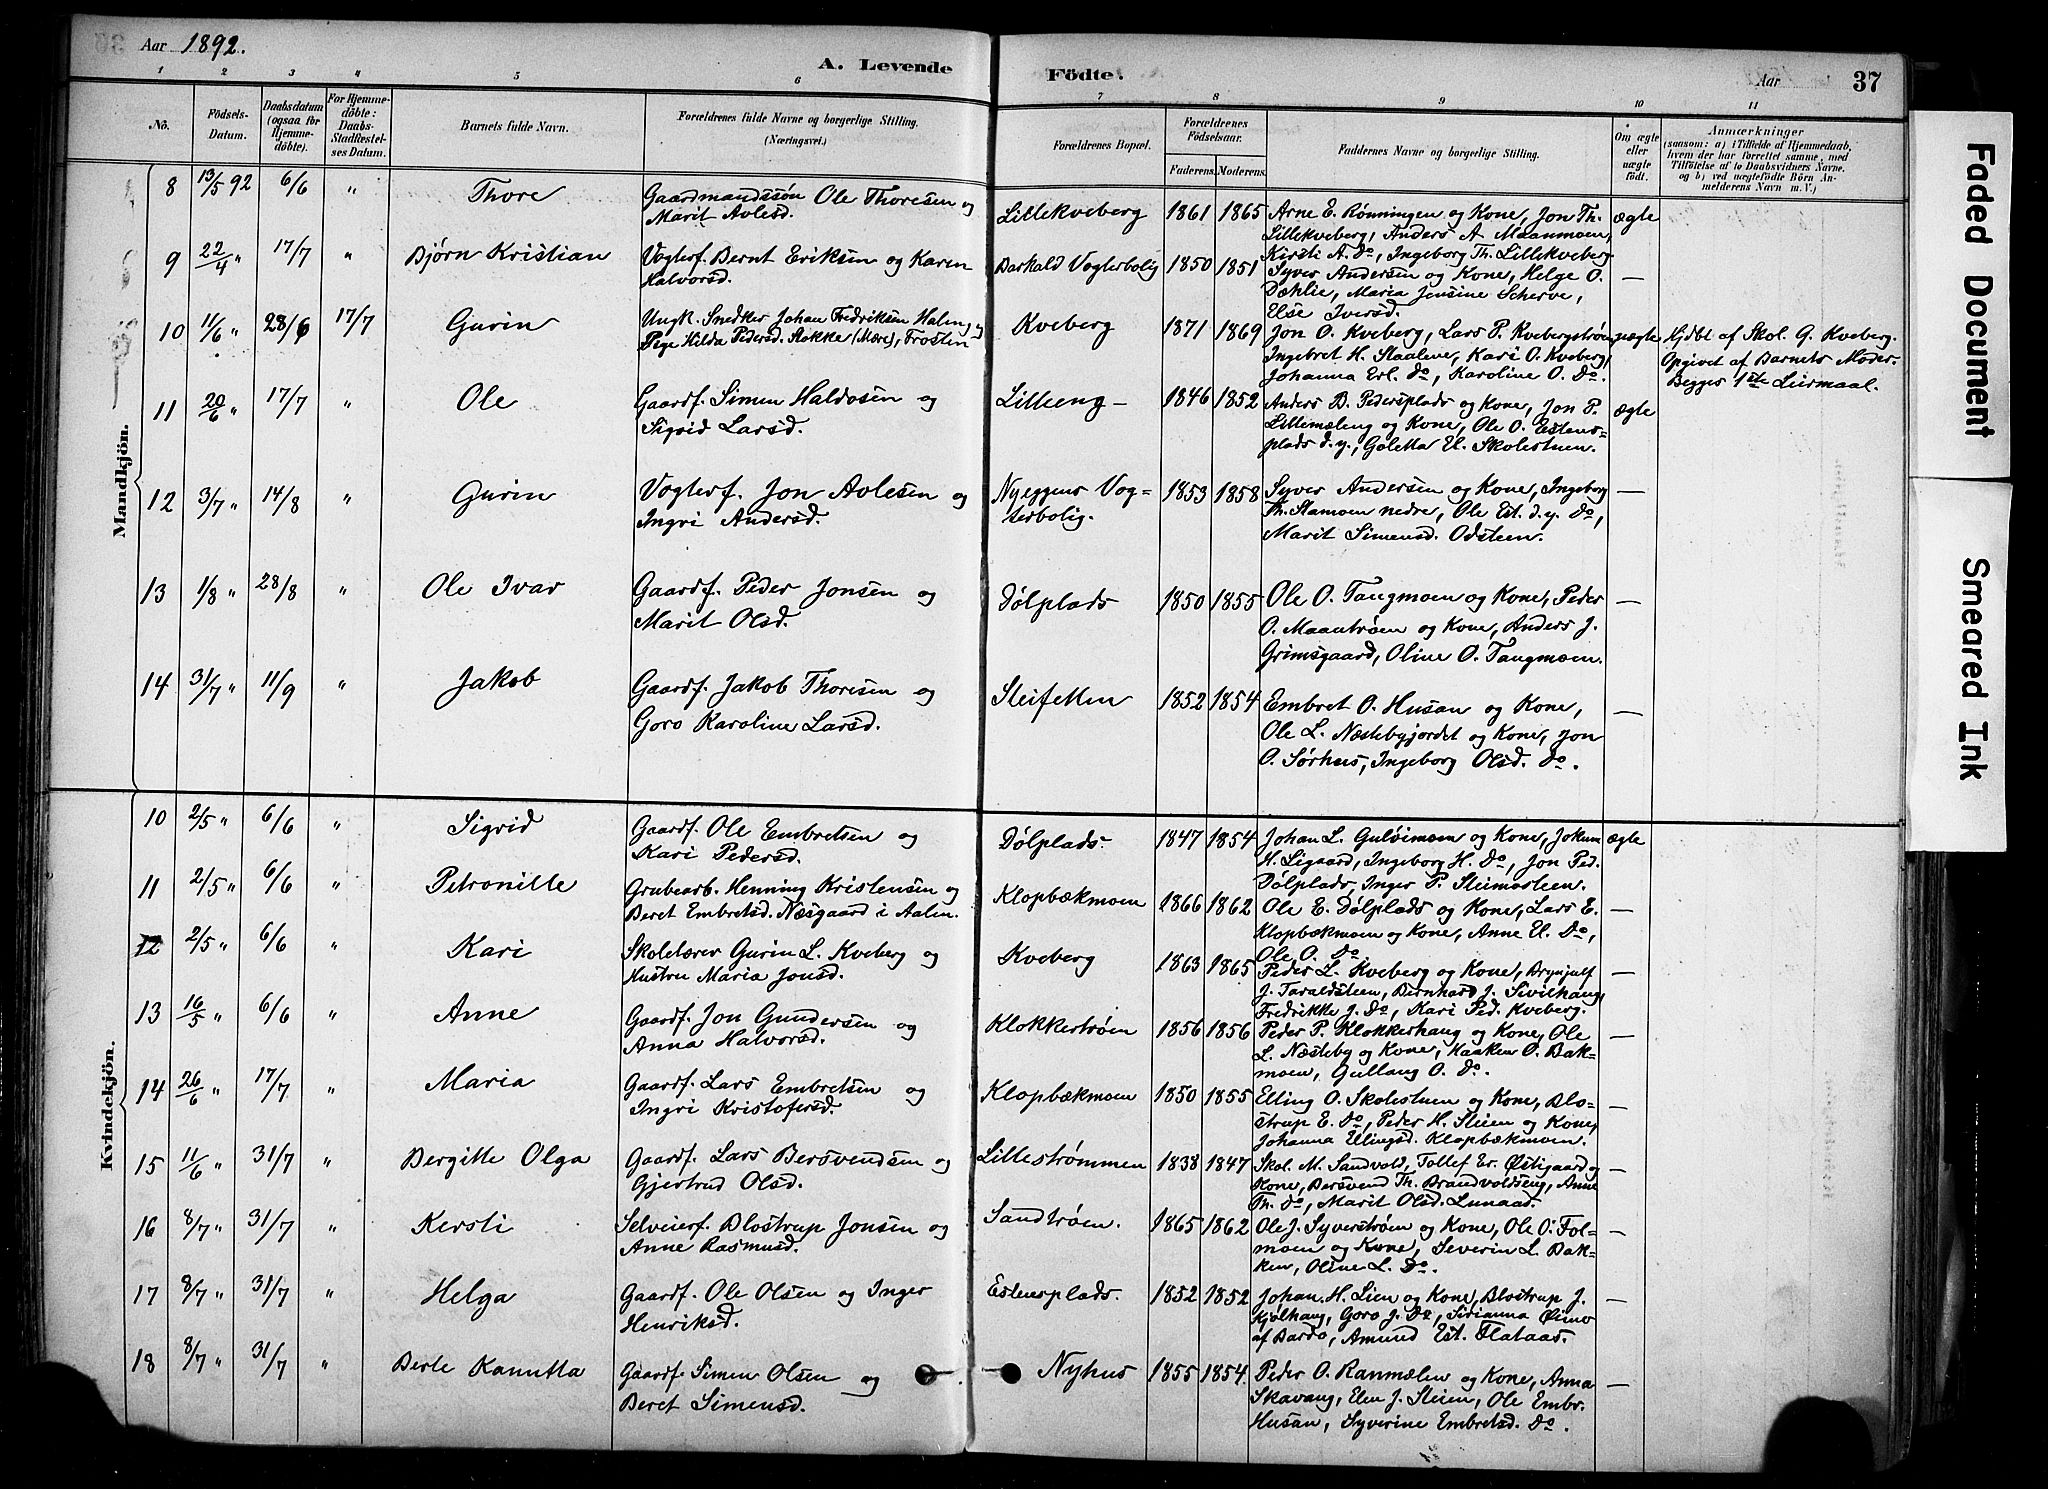 Aar 1892.
A. Levende Födte.
Aar 37
1 2 3 4 5 6 7 8 9 10 11
No. Födsels-Datum. Daabsdatum (ogsaa for Hjemmedöbte). For Hjemmedöbte: Daabs-Stadfæstelses Datum. Barnets fulde Navn. Forældrenes fulde Navne og borgerlige Stilling. (Næringsvei.) Forældrenes Bopæl. Forældrenes Födselsaar. Faderens. Moderens. Faddernes Navne og borgerlige Stilling. Om ægte eller uægte födt. Anmærkninger (saasom: a) i Tilfælde af Hjemmedaab, hvem der har forrettet samme, med Tilföielse af to Daabsvidners Navne. og b) ved uægtefödte Börn Anmelderens Navn m. V.)
Mandkjön.
8 13/5 92 6/6 " Thore Gaardmandssøn Ole Thoresen og Lillekveberg 1861 1865 Arne E. Rønningen og Kone, Jon Th. ægte
Marit Avlesd. Lillekveberg, Anders A. Maanmoen,
Kirsti A. Do, Ingeborg Th. Lillekveberg
9 22/4 " 17/7 " Bjørn Kristian Vogterf. Bernt Eriksen og Karen Barkald Vogterbolig 1850 1851 Syver Andersen og Kone, Helge O. —
Halvorsd. Dæhlie, Maria Jensine Scherve,
Else Iversd.
10 11/6 " 28/6 17/7 Gurin Ungk. Snedker Johan Fredriksen Halm og Kveberg 1871 1869 Jon O. Kveberg, Lars P. Kvebergstrøen, uægte Hjdbt af Skol. G. Kveberg.
Pige Hilda Pedersd. Stokke (Mære), Frosten Ingebret H. Staalene, Kari O. Kveberg, Opgivet af Barnets Moder.
Johanna Erl. Do, Karoline O. Do. Begges 1ste Leiermaal.
11 20/6 " 17/7 " Ole Gaardf. Simen Haldosen og Lilleeng — 1846 1852 Anders B. Pedersplads og Kone, Jon P. ægte
Sigrid Larsd. Lillemæleng og Kone, Ole O. Estens-
plads d.y., Goletta El. Skolestuen.
12 3/7 " 14/8 " Gurin Vogterf. Jon Avlesen og Nyeggens Vog- 1853 1858 Syver Andersen og Kone, Ingeborg —
Ingri Andersd. terbolig. Th. Stamoen nedre, Ole Est. d.y. Do,
Marit Simensd. Odsteen.
13 1/8 " 28/8 " Ole Ivar Gaardf. Peder Jonsen og Dølplads 1850 1855 Ole O. Tangmoen og Kone, Peder —
Marit Olsd. O. Maantrøen og Kone, Anders J.
Grimsgaard, Oline O. Tangmoen.
14 31/7 " 11/9 " Jakob Gaardf. Jakob Thoresen og Steifetten 1852 1854 Embret O. Husan og Kone, —
Goro Karoline Larsd. Ole L. Næstebyjordet og Kone, Jon
O. Sørhus, Ingeborg Olsd. Do.
Kvindekjön.
10 2/5 " 6/6 " Sigrid Gaardf. Ole Embretsen og Dølplads. 1847 1854 Johan L. Guløimoen og Kone, Jokum ægte
Kari Pedersd. H. Ligaard, Ingeborg H. Do, Jon Ped.
Dølplads, Inger P. Steimosteen.
11 2/5 " 6/6 " Petronille Grubearb. Henning Kristensen og Klopbækmoen 1866 1862 Ole E. Dølplads og Kone, Lars E. —
Beret Embretsd. Næsgaard i Aalen. Klopbækmoen og Kone, Anne El. Do,
Ole O. Do.
12 2/5 " 6/6 " Kari Skolelærer Gurin L. Kveberg og Kveberg 1863 1865 Peder L. Kveberg og Kone, Brynjulf —
Hustru Maria Jonsd. J. Taraldsteen, Bernhard J. Sivilhaug,
Fredrikke J. Do, Kari Ped. Kveberg.
13 16/5 " 6/6 " Anne Gaardf. Jon Gundersen og Klokkertrøen 1856 1856 Peder P. Klokkerhaug og Kone, Ole —
Anna Halvorsd. L. Næsteby og Kone, Haaken O. Bak-
moen, Gullaug O. Do.
14 26/6 " 17/7 " Maria Gaardf. Lars Embretsen og Klopbækmoen 1850 1855 Elling O. Skolestuen og Kone, Blo- —
Ingri Kristofersd. strup E. Do, Peder H. Steien og Kone,
Johanna Ellingsd. Klopbækmoen.
15 11/6 " 31/7 " Bergitte Olga Gaardf. Lars Bersvendsen og Lillestrømmen 1838 1847 Skol. M. Sandvold, Tollef Er. Østigaard og —
Gjertrud Olsd. Kone, Bersvend Th. Brandvoldseng, Anne
Th. Do, Marit Olsd. Lunaas.
16 8/7 " 31/7 " Kersti Selveierf. Blostrup Jonsen og Sandtrøen. 1865 1862 Ole J. Syverstrøen og Kone, Ole O. Fol- —
Anne Rasmusd. moen og Kone, Severin L. Bak-
ken, Oline L. Do.
17 8/7 " 31/7 " Helga Gaardf. Ole Olsen og Inger Estensplads. 1852 1852 Johan. H. Lien og Kone, Blostrup J. —
Henriksd. Kjølhaug, Goro J. Do, Sirianna Øimo
af Bardo, Amund Est. Flataas.
18 8/7 " 31/7 " Berte Kanutta Gaardf. Simen Olsen og Nyhus 1855 1854. Peder O. Ranmælen og Kone, Anna —
Beret Simensd. Skavang, Elen J. Steien, Ole Embr.
Husan, Syverine Embretsd. Do.
Faded Document
Smeared Ink